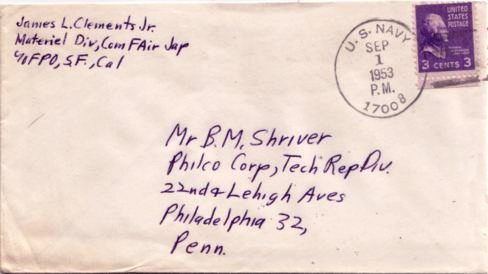 James L. Clements Jr.
Materiel Div, Com FAir Jap
c/o FPO, S.F., Cal
U.S. NAVY
SEP
1
1953
P.M.
17008
UNITED
STATES
POSTAGE
3 CENTS 3
Mr B.M. Shriver
Philco Corp, Tech Rep Div.
22nd & Lehigh Aves
Philadelphia 32,
Penn.